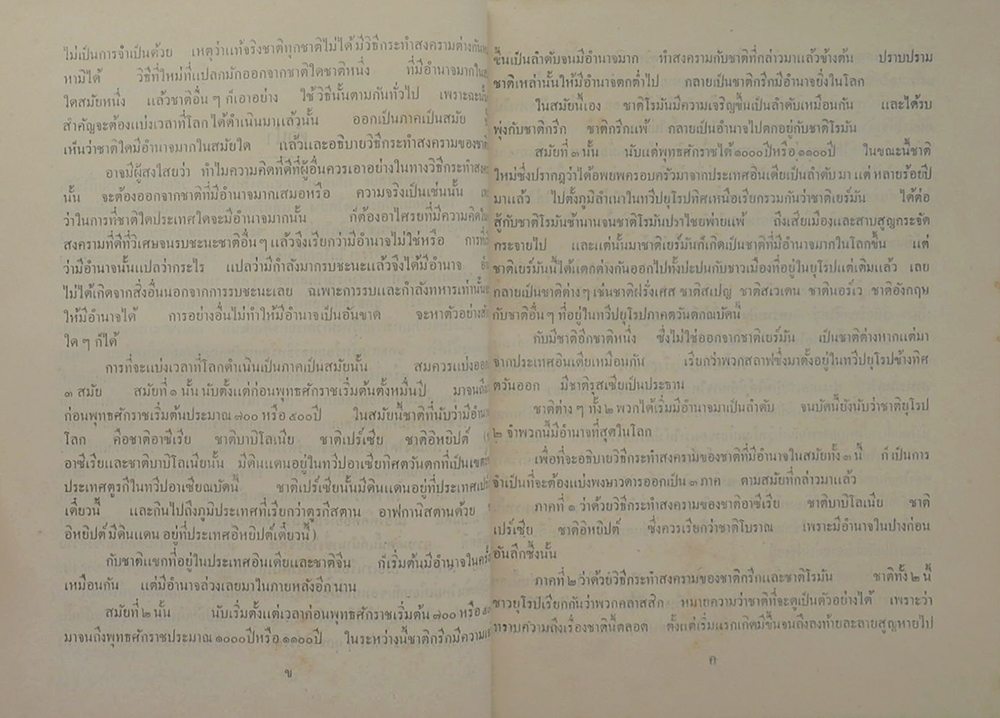 ไม่เป็นการจำเป็นด้วย เหตุว่าแท้จริงชาติทุกชาติไม่ได้มีวิธีกระทำสงครามต่างกัน
หามิได้ วิธีที่ใหม่ที่แปลกมักออกจากชาติใดชาติหนึ่ง ที่มีอำนาจมากใน
ใดสมัยหนึ่ง แล้วชาติอื่น ๆ ก็เอาอย่าง ใช้วิธีนั้นตามกันทั่วไป เพราะฉะนั้น
สำคัญจะต้องแบ่งเวลาที่โลกได้ดำเนินมาแล้วนั้น ออกเป็นภาคเป็นสมัย
เห็นว่าชาติใดมีอำนาจมากในสมัยใด แล้วและอธิบายวิธีกระทำสงครามของชาติ
อาจมีผู้สงใสยว่า ทำไมความคิดที่ดีที่ผู้อื่นควรเอาอย่างในทางวิธีกระทำ
นั้น จะต้องออกจากชาติที่มีอำนาจมากเสมอหรือ ความจริงเป็นเช่นนั้น
ว่าในการที่ชาติใดประเทศใดจะมีอำนาจมากนั้น ก็ต้องอาไศรยที่มีความคิด
สงครามที่ดีที่วิเศษจนรบชะนะชาติอื่น ๆ แล้วจึงเรียกว่ามีอำนาจไม่ใช่หรือ การที่
ว่ามีอำนาจนั้นแปลว่ากระไร แปลว่ามีกำลังมากรบชะนะแล้วจึงได้มีอำนาจ
ไม่ได้เกิดจากสิ่งอื่นนอกจากการรบชะนะเลย ฉเพาะการรบและกำลังทหารเท่านั้น
ให้มีอำนาจได้ การอย่างอื่นไม่ทำให้มีอำนาจเป็นอันขาด จะหาตัวอย่าง
ใด ๆ ก็ได้
การที่จะแบ่งเวลาที่โลกดำเนินเป็นภาคเป็นสมัยนั้น สมควรแบ่งออก
๓ สมัย สมัยที่ ๑ นั้น นับตั้งแต่ก่อนพุทธศักราชเริ่มต้นตั้งหมื่นปี มาจนถึง
ก่อนพุทธศักราชเริ่มต้นประมาณ ๗๐๐ หรือ ๕๐๐ ปี ในสมัยนี้ชาติที่นับว่ามีอำนาจ
โลก คือชาติอาซีเรีย ชาติบาบิโลเนีย ชาติเปร์เซีย ชาติอิหยิปต์
อาซีเรียและชาติบาบิโลเนียนั้น มีดินแดนอยู่ในทวีปอาเซียทิศตวันตกที่เป็นเขต
ประเทศตุรกีในทวีปอาเซียณบัดนี้ ชาติเปร์เซียนั้นมีดินแดนอยู่ที่ประเทศ
เดี๋ยวนี้ และกินไปถึงภูมิประเทศที่เรียกว่าตุรกีสตาน อาฟกานิสตานด้วย
อิหยิปต์มีดินแดน อยู่ที่ประเทศอิหยิปต์เดี๋ยวนี้)
กับชาติแขกที่อยู่ในประเทศอินเดียและชาติจีน ก็เริ่มต้นมีอำนาจใน
เหมือนกัน แต่มีอำนาจล่วงเลยมาในภายหลังอีกนาน
สมัยที่ ๒ นั้น นับเริ่มตั้งแต่เวลาก่อนพุทธศักราชเริ่มต้น ๗๐๐ หรือ
มาจนถึงพุทธศักราชประมาณ ๑๐๐๐ ปีหรือ ๑๑๐๐ ปี ในระหว่างนี้ชาติกรีกมีความ
ข
ขึ้นเป็นลำดับจนมีอำนาจมาก ทำสงครามกับชาติที่กล่าวมาแล้วข้างต้น ปราบปราม
ชาติเหล่านั้นให้มีอำนาจตกต่ำไป กลายเป็นชาติกรีกมีอำนาจยิ่งในโลก
ในสมัยนี้เอง ชาติโรมันมีความเจริญขึ้นเป็นลำดับเหมือนกัน และได้รบ
พุ่งกับชาติกรีก ชาติกรีกแพ้ กลายเป็นอำนาจไปตกอยู่กับชาติโรมัน
สมัยที่ ๓ นั้น นับแต่พุทธศักราชได้ ๑๐๐๐ ปีหรือ ๑๑๐๐ ปี ในขณะนี้ชาติ
ใหม่ซึ่งปรากฎว่าได้อพยพครอบครัวมาจากประเทศอินเดียเป็นลำดับ มา แต่ หลายร้อยปี
มาแล้ว ไปตั้งภูมิลำเนาในทวีปยุโรปทิศเหนือเรียกรวมกันว่าชาติเยร์มัน ได้ต่อ
สู้กับชาติโรมันช้านานจนชาติโรมันปราไชยพ่ายแพ้ ถึงเสียเมืองและสาบสูญกระจัด
กระจายไป และแต่นั้นมาชาติเยร์มันก็เกิดเป็นชาติที่มีอำนาจมากในโลกขึ้น แต่
ชาติเยร์มันนี้ได้แตกต่างกันออกไปทั้งปะปนกับชาวเมืองที่อยู่ในยุโรปแต่เดิมแล้ว เลย
กลายเป็นชาติต่าง ๆ เช่นชาติฝรั่งเศส ชาติสเปญ ชาติสเวเดน ชาตินอร์เว ชาติอังกฤษ
กับชาติอื่น ๆ ที่อยู่ในทวีปยุโรปภาคตวันตกณบัดนี้
กับมีชาติอีกชาติหนึ่ง ซึ่งไม่ใช่ออกจากชาติเยร์มัน เป็นชาติต่างหากแต่มา
จากประเทศอินเดียเหมือนกัน เรียกว่าพวกสลาฟซึ่งมาตั้งอยู่ในทวีปยุโรปข้างทิศ
ตวันออก มีชาติรุสเซียเป็นประธาน
ชาติต่าง ๆ ทั้ง ๒ พวกได้เริ่มมีอำนาจมาเป็นลำดับ จนบัดนี้ยังนับว่าชาติยุโรป
๒ จำพวกนี้มีอำนาจที่สุดในโลก
เพื่อที่จะอธิบายวิธีกระทำสงครามของชาติที่มีอำนาจในสมัยทั้ง ๓ นี้ ก็เป็นการ
จำเป็นที่จะต้องแบ่งพงษาวดารออกเป็น ๓ ภาค ตามสมัยที่กล่าวมาแล้ว
ภาคที่ ๑ ว่าด้วยวิธีกระทำสงครามของชาติอาซีเรีย ชาติบาบิโลเนีย ชาติ
เปร์เซีย ชาติอิหยิปต์ ซึ่งควรเรียกว่าชาติโบราณ เพราะมีอำนาจในปางก่อน
อันลึกซึ้งนั้น
ภาคที่ ๒ ว่าด้วยวิธีกระทำสงครามของชาติกรีกและชาติโรมัน ชาติทั้ง ๒ นี้
ชาวยุโรปเรียกกันว่าพวกคลาสสิก หมายความว่าชาติที่จะดูเป็นตัวอย่างได้ เพราะว่า
ทราบความถึงเรื่องชาตินี้ตลอด ตั้งแต่เริ่มแรกเกิดมีขึ้นจนถึงลงท้ายละลายสูญหายไป
ค